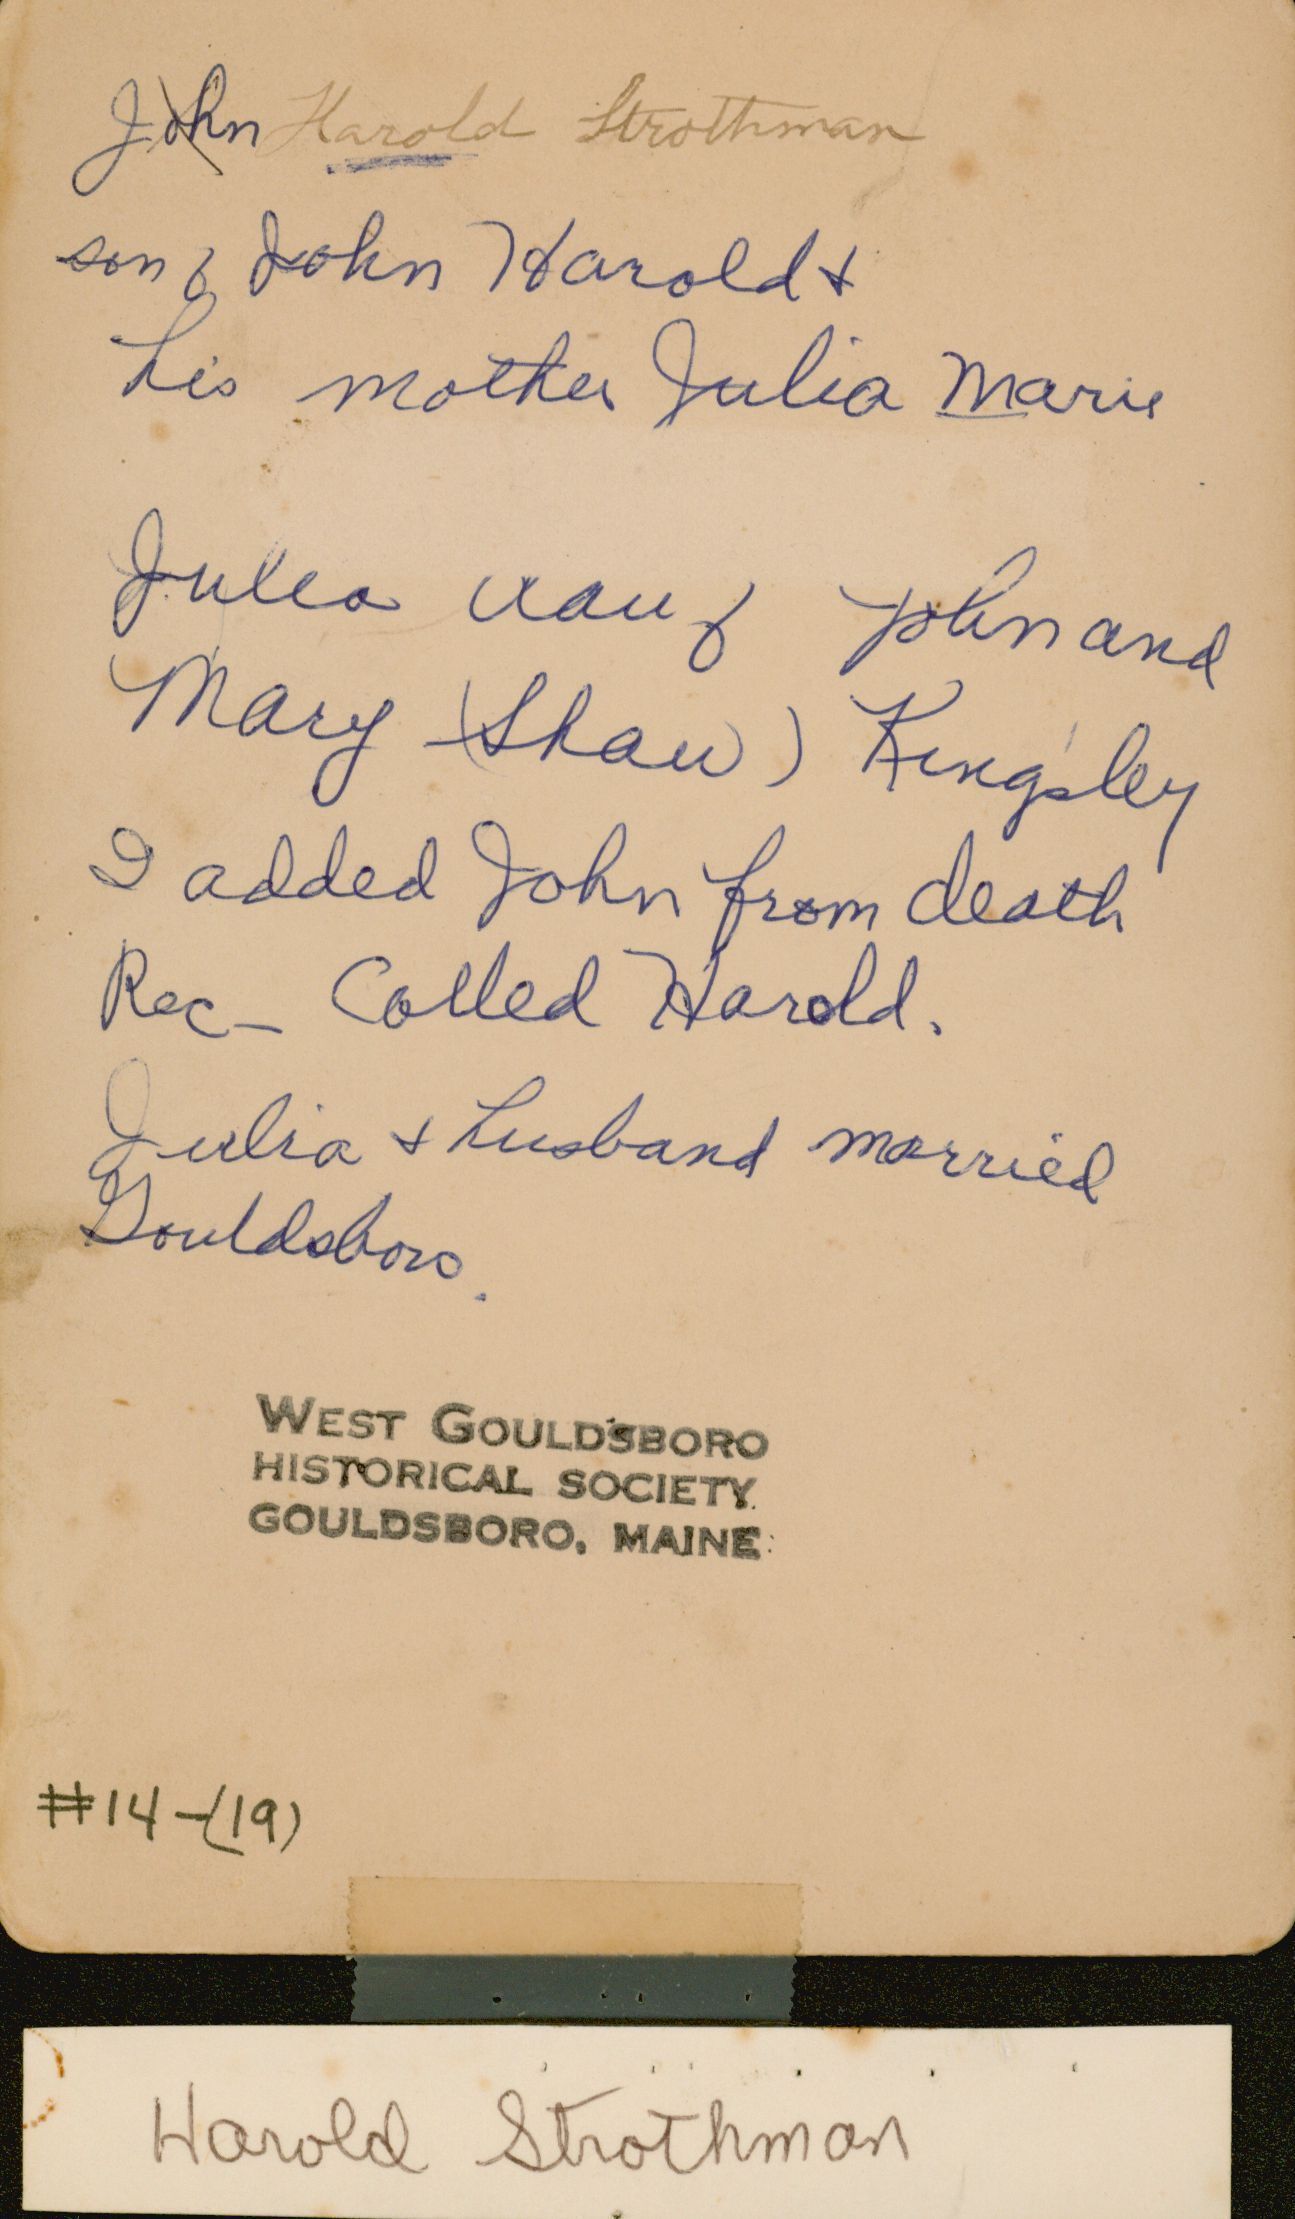 John Harold Strothman
son of John Harold +
his mother Julia Marie
Julia dau of John and
Mary (Shaw) Kingsley
I added John from death
Rec - Called Harold.
Julia + husband married
Gouldsboro.
WEST GOULDSBORO
HISTORICAL SOCIETY
GOULDSBORO, MAINE
#14-(19)
Harold Strothman